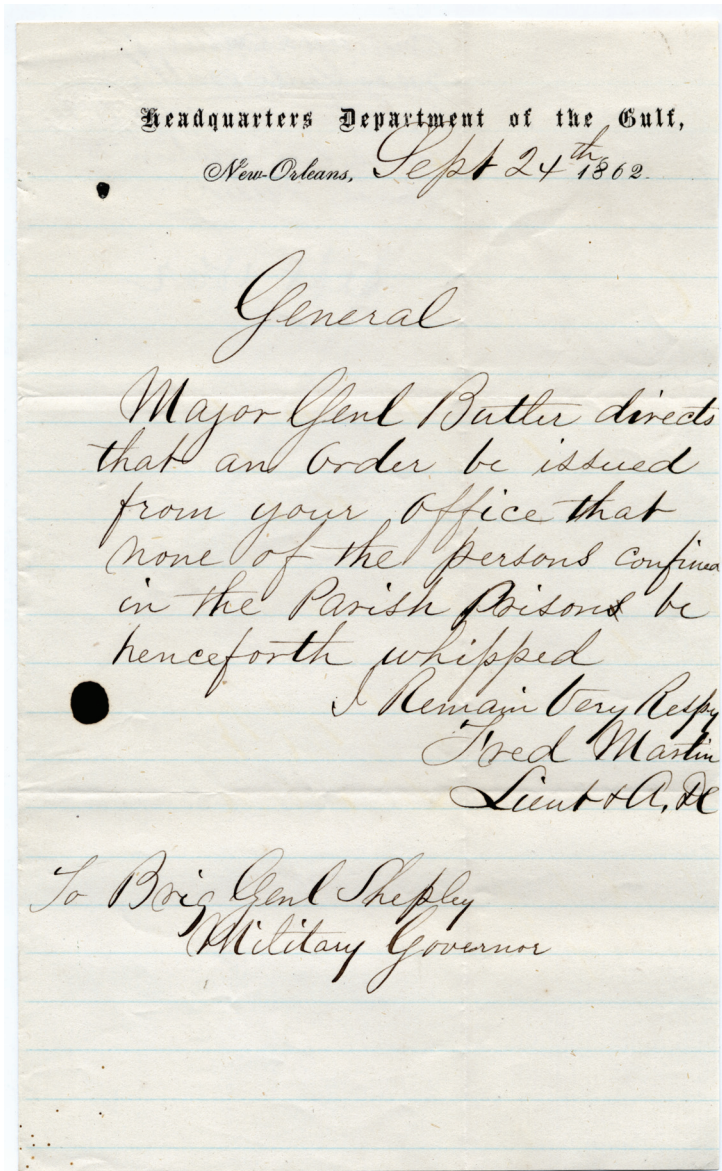 Headquarters Department of the Gulf,
New-Orleans, Sept 24th 1862.
General
Major Genl Butler directs
that an Order be issued
from your Office that
none of the persons confined
in the Parish Prisons be
henceforth whipped
I Remain Very Respy
Fred Martin
Lieut & A, DC
To Brig Genl Shepley
Military Governor